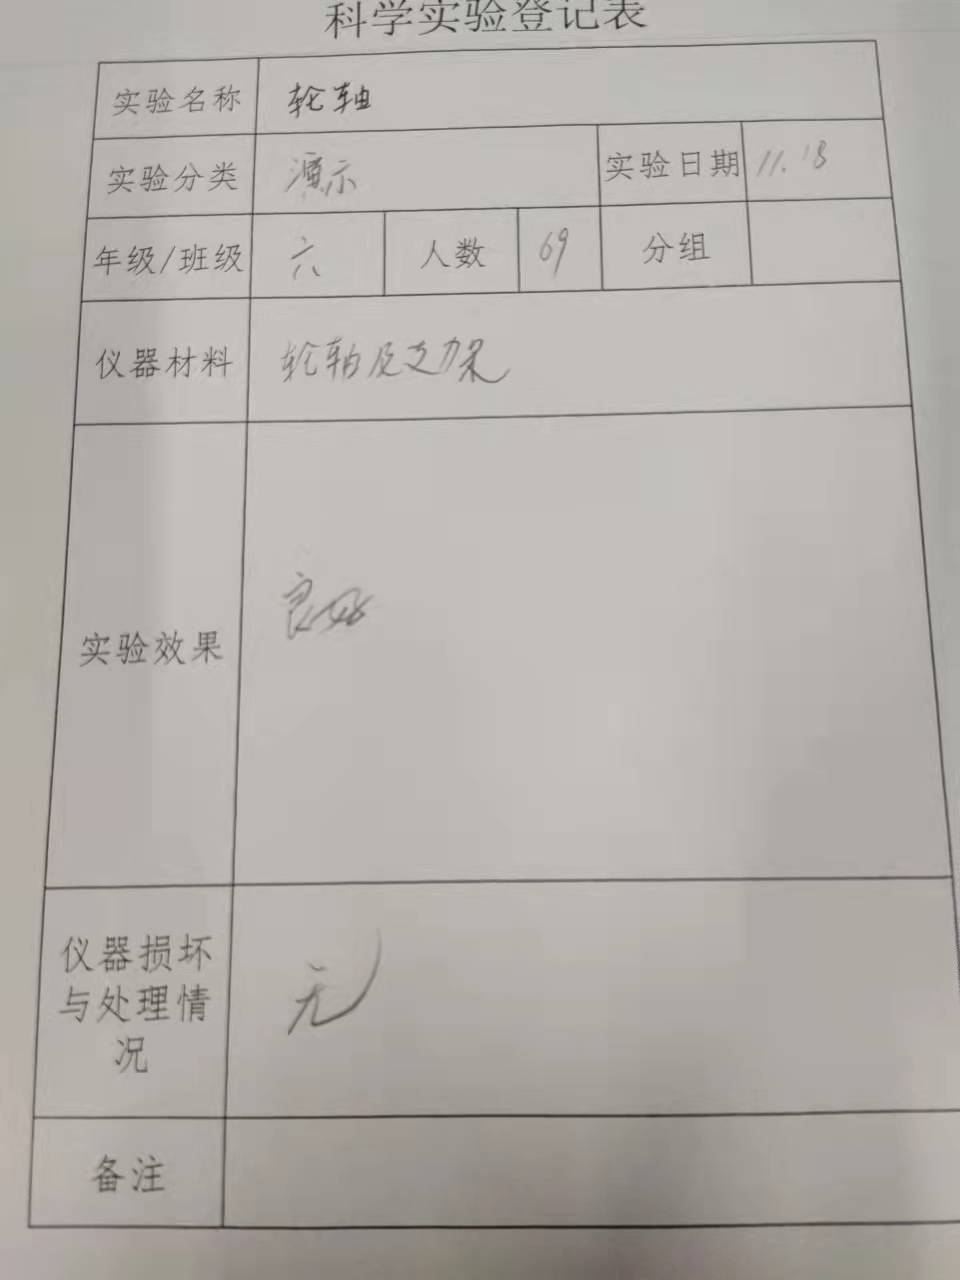 科学实验登记表
实验名称 轮轴
实验分类 演示 实验日期 11.18
年级/班级 六 人数 69 分组
仪器材料 轮轴及支架
实验效果 良好
仪器损坏
与处理情
况
无
备注